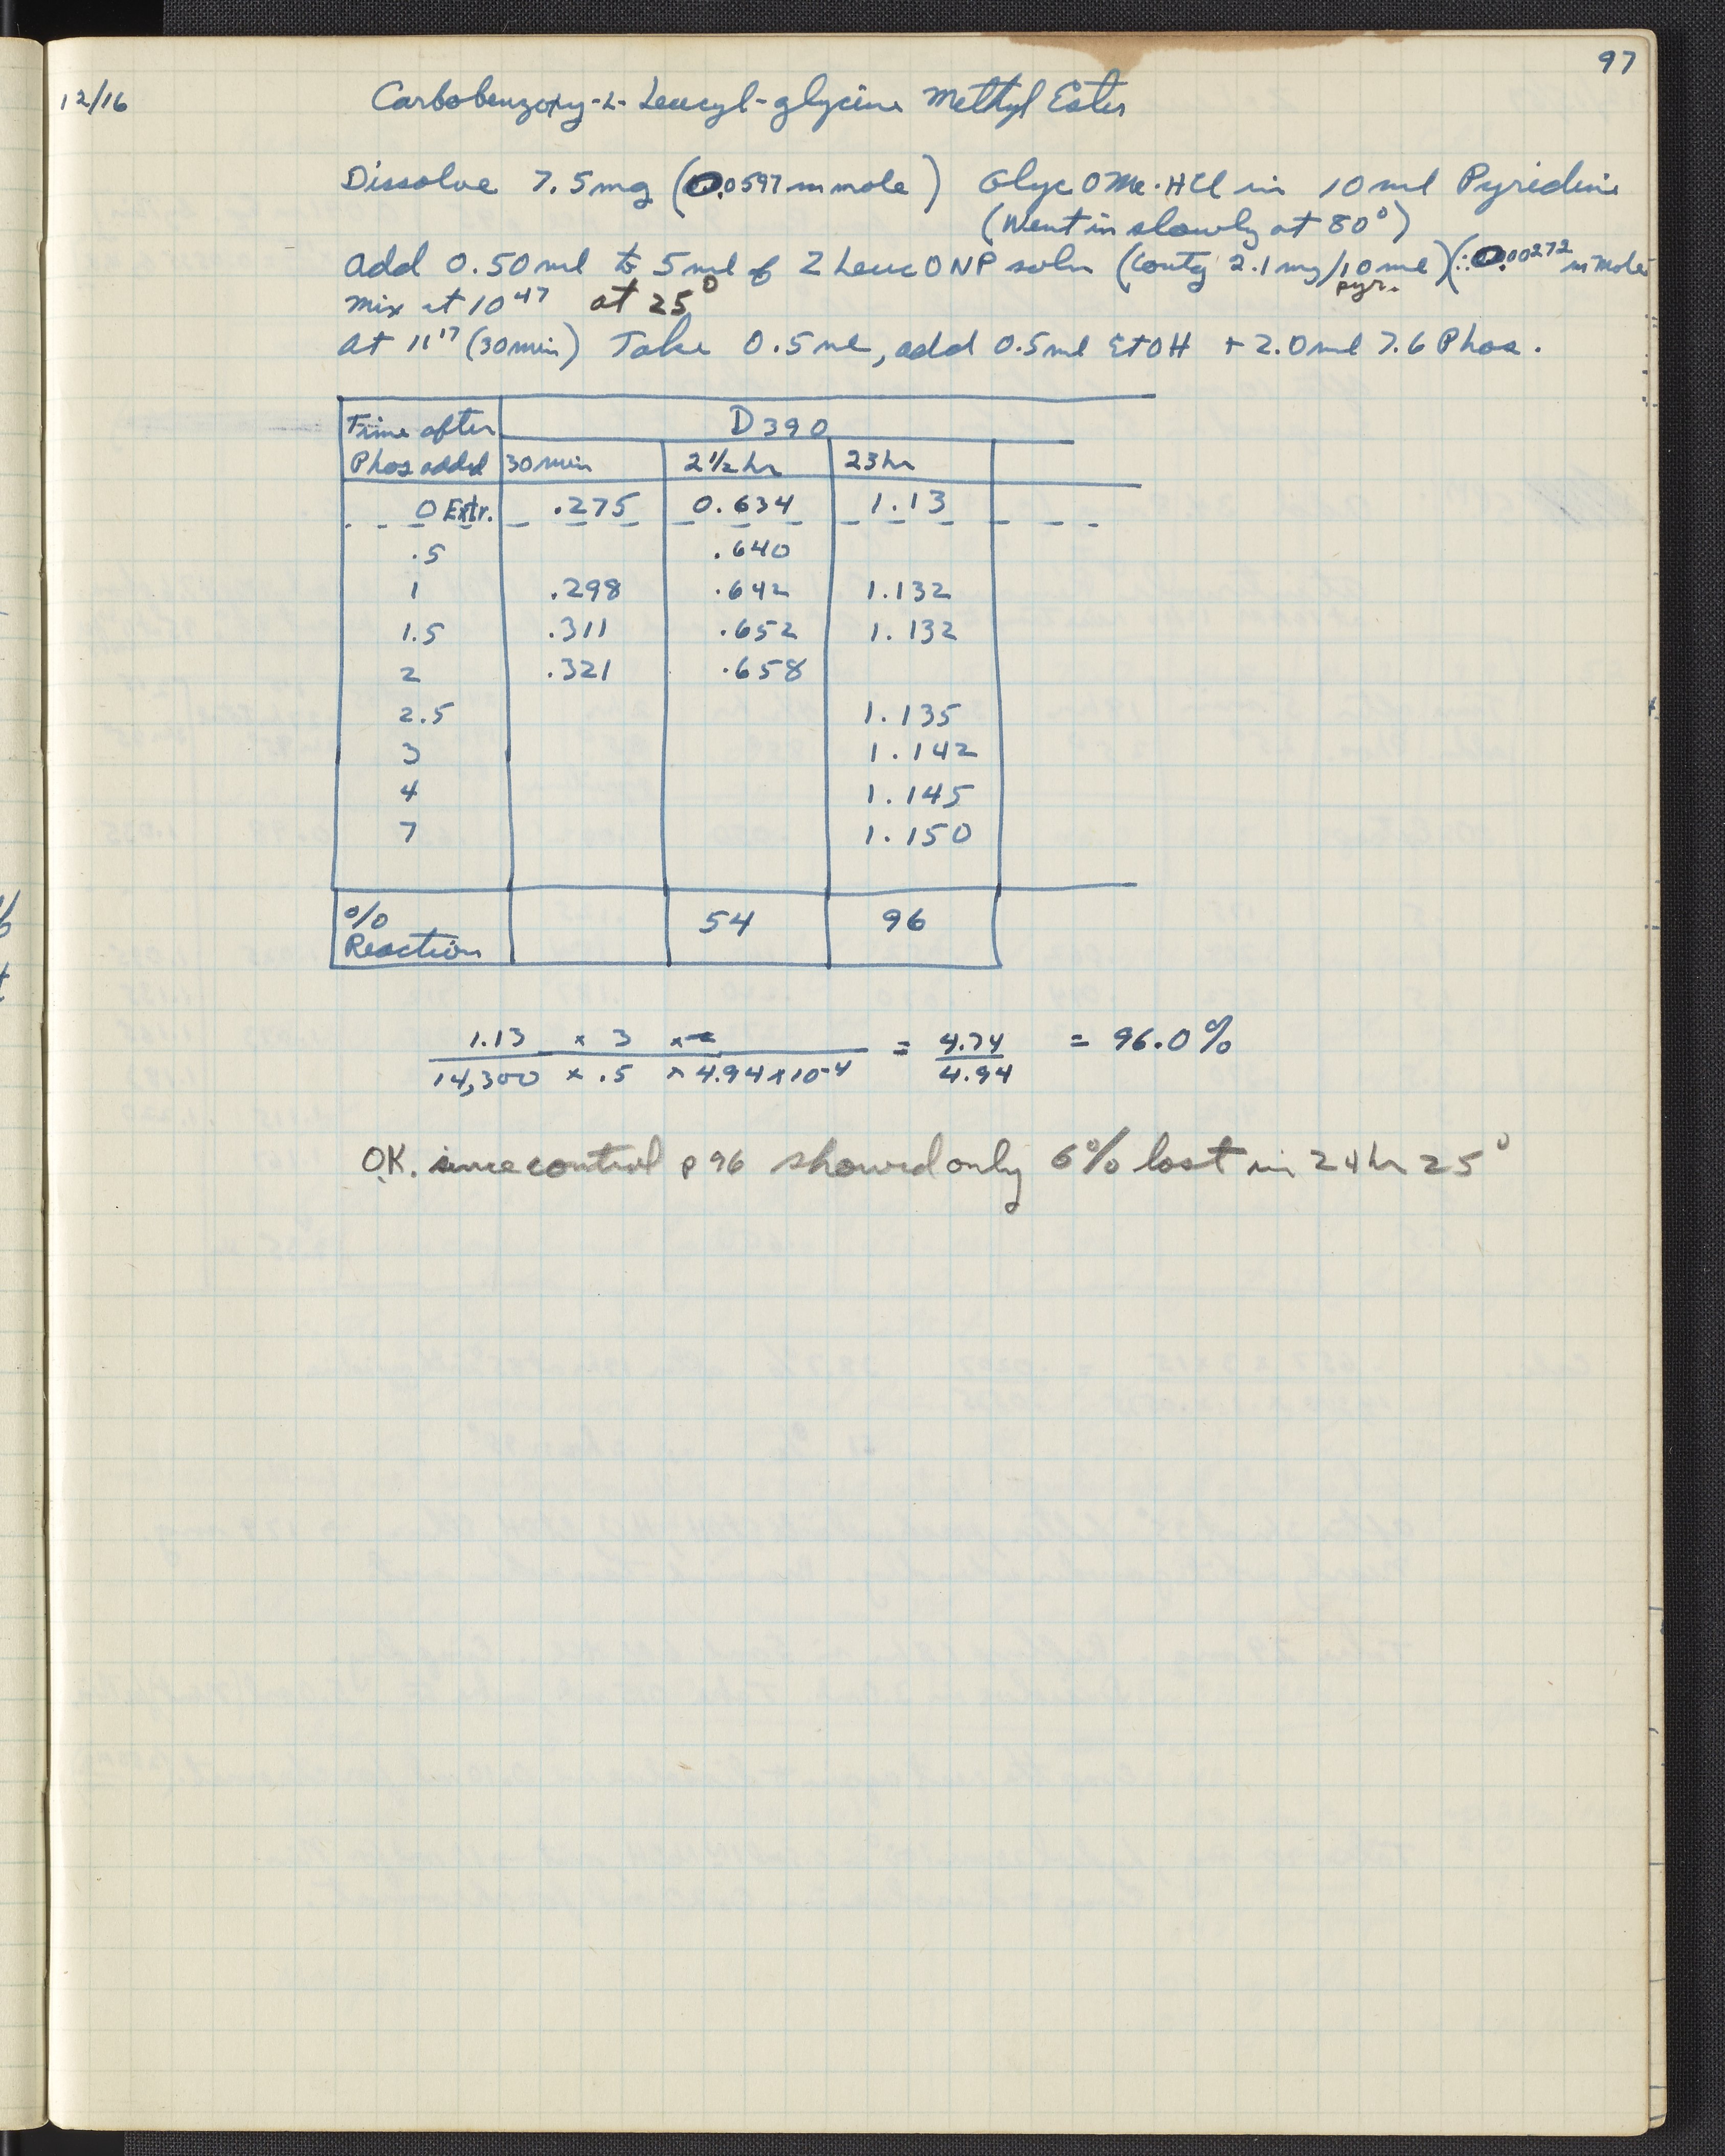 97
12/16
Carbobenzoxy-L-Leucyl-glycine Methyl Ester
Dissolve 7.5mg (0.0597 mmole) Glyc OMe·HCl in 10 ml Pyridine
(Went in slowly at 80°)
Add 0.50 ml to 5 ml of Z Leuc ONP soln (contg 2.1 mg/10 ml pyr.) (∴ 0.00272 mmole
Mix at 10⁴⁷ at 25°
At 11¹⁷ (30min) Take 0.5 ml, add 0.5 ml EtOH + 2.0 ml 7.6 Phos.
Time after D390
Phos added 30 min 2½ hr 23 hr
0 Extr. .275 0.634 1.13
.5 .640
1 .298 .642 1.132
1.5 .311 .652 1.132
2 .321 .658
2.5 1.135
3 1.142
4 1.145
7 1.150
% 54 96
Reaction
1.13 × 3 × = 4.74 = 96.0%
14,300 × .5 × 4.94 × 10-4 4.94
O.K. since control p 96 showed only 6% lost in 24 hr 25°